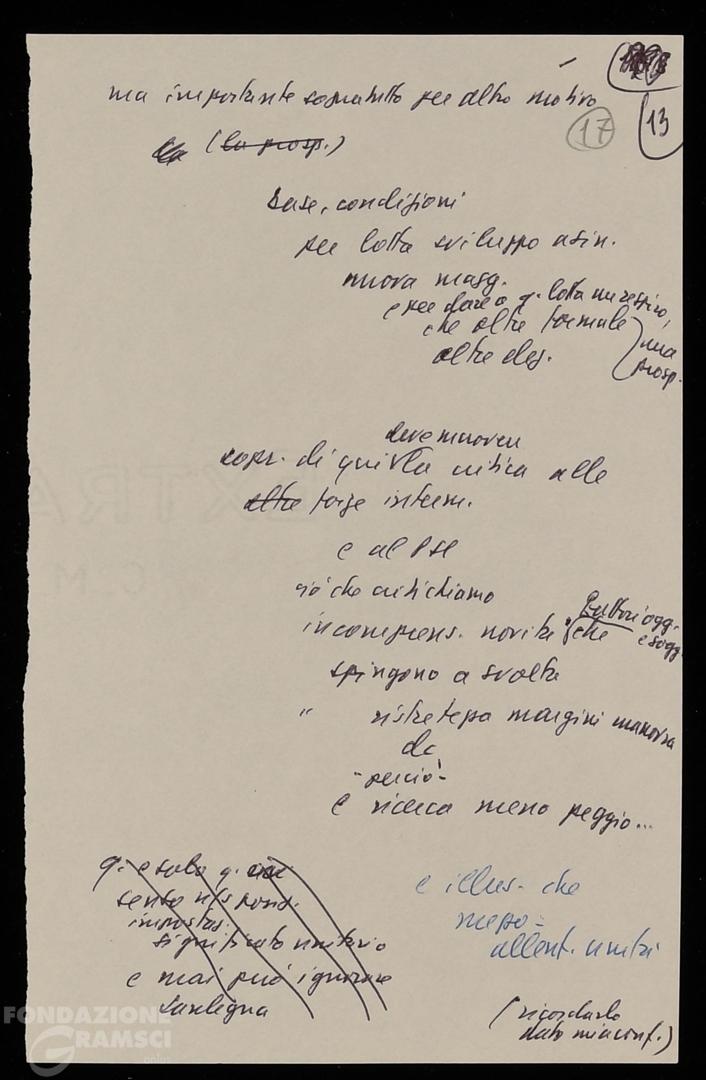 13
17
ma importante sopratutto per altro motivo
(la prosp.)
base, condizioni
per lotta sviluppo a sin.
nuova magg.
e per dare a q. lotta un respiro,
che oltre formale
oltre des.
una
prosp.
deve muovere
sopr. di qui la critica alle
altre forze interm.
e al PSI
ciò che critichiamo
incomprens. novità che
fattori ogg.
e sogg.
spingono a svolte
" ristretezza margini manovra
dc
- perciò -
e ricerca meno peggio...
q. e solo q.
senso respons.
impostaz.
significato unitario
e mai può ignorare
Sardegna
e illus. che
mezzo =
allent. unità
(ricordarlo
dato mia conf.)
FONDAZIONE
GRAMSCI
onlus